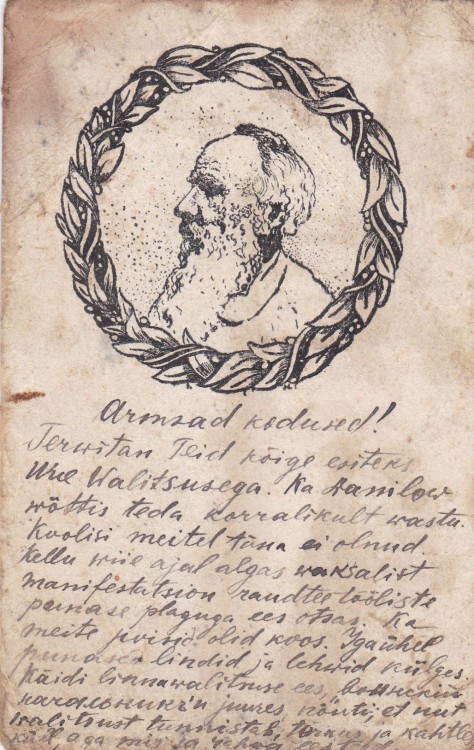 Armsad kodused!
Terwitan Teid kõige esiteks
Uue Walitsusega. Ka Danilow
wõttis teda korralikult wastu.
Koolisi meitel täna ei olnud.
Kellu wiie ajal algas waksalist
manifestatsion raudtee tööliste
punase plaguga ees otsas. Ka
meite poisid olid koos. Igaühel
punased lindid ja lehwid küljes.
Käidi linnawalitsuse ees, воинский
начальник'и juures, nõuti, et uut
walitsust tunnistab,
küll, aga